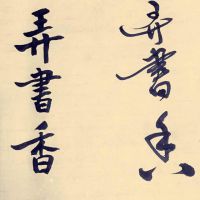 弄書香
弄書香